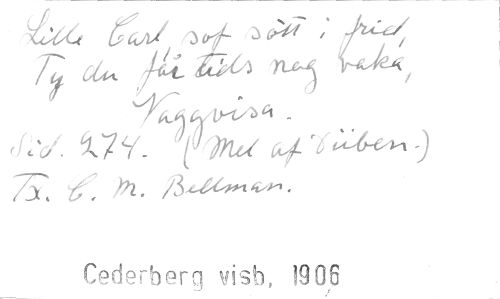 Lille Carl, sof sött i frid,
Ty du får tids nog vaka,
Vaggvisa.
Sid. 274. (Mel af Düben.)
Tx. C. M. Bellman.
Cederberg visb, 1906